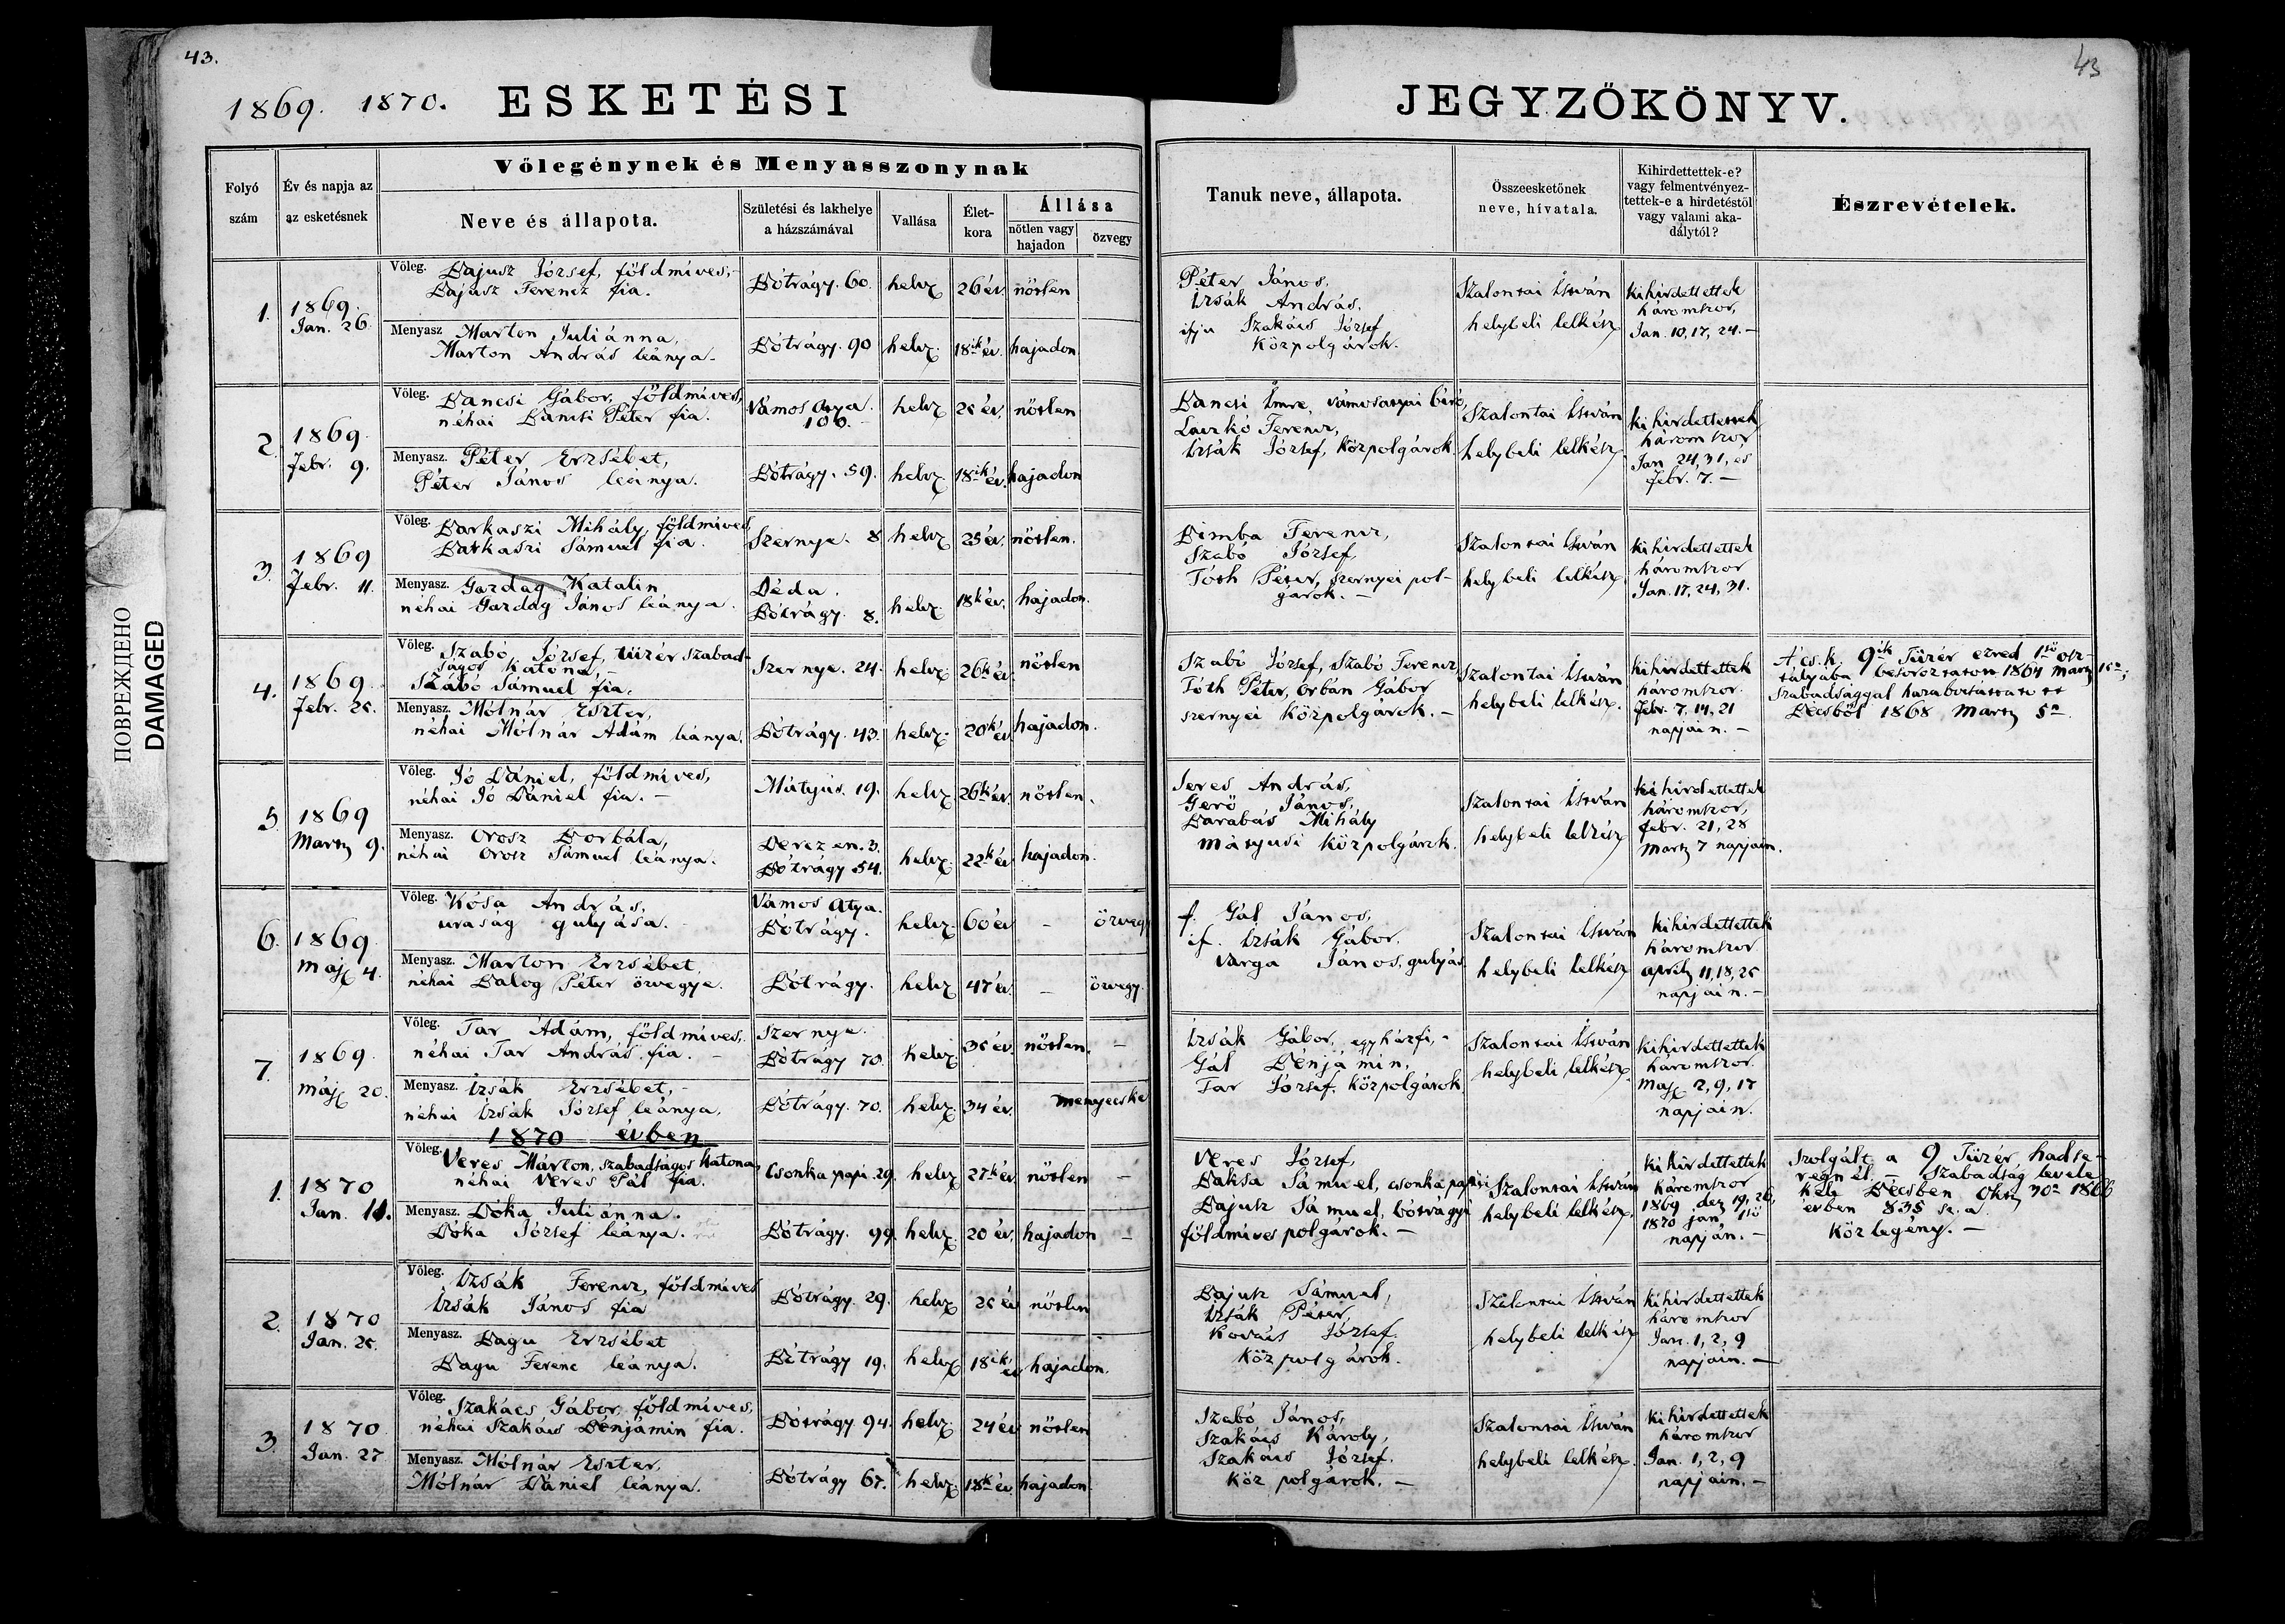 43.
43
1869. 1870. ESKETÉSI
JEGYZŐKÖNYV.
ПОВРЕЖДЕНО
DAMAGED
Folyó szám
Év és napja az az esketésnek
Vőlegénynek és Menyasszonynak
Neve és állapota.
Születési és lakhelye a házszámával
Vallása
Élet-kora
Állása
nőtlen vagy hajadon
özvegy
Tanuk neve, állapota.
Összeesketőnek neve, hívatala.
Kihirdettettek-e? vagy felmentvényez-tettek-e a hirdetéstől vagy valami aka-dálytól?
Észrevételek.
1.
1869.
Jan. 26.
Vőleg. Bajusz József, földmíves,
Bajusz Ferencz fia.
Bótrágy. 60. helv. 26 év. nőtlen
Menyasz Marton Juliánna,
Marton András leánya.
Bótrágy. 90 helv. 18ik év. hajadon
Péter János,
Izsák András,
ifju Szakács József
közpolgárok.
Szalontai István
helybeli lelkész
kihirdettettek
háromszor,
Jan. 10, 17, 24. –
2.
1869.
Febr. 9.
Vőleg. Bancsi Gábor, földmíves,
néhai Bancsi Péter fia.
Vámos Atya.
106.
helv. 25 év. nőtlen
Menyasz. Péter Erzsébet,
Péter János leánya.
Bótrágy. 59. helv. 18ik év. hajadon
Bancsi Imre, vámosatyai biró,
Laczkó Ferencz,
Izsák József, közpolgárok.
Szalontai István
helybeli lelkész.
kihirdettettek
háromszor
Jan. 24, 31, és
febr. 7. –
3.
1869
Febr. 11.
Vőleg. Barkaszi Mihály, földmíves,
Barkaszi Sámuel fia.
Szernye. 8 helv. 25 év. nőtlen.
Menyasz. Gazdag Katalin
néhai Gazdag János leánya.
Déda.
Bótrágy 8.
helv. 18k év. hajadon.
Bimba Ferencz,
Szabó József,
Tóth Péter, szernyei pol-
gárok. –
Szalontai István
helybeli lelkész.
kihirdettettek
háromszor
Jan. 17, 24, 31.
4.
1869.
Febr. 25.
Vőleg. Szabó József, tüzér szabad-
ságos katona,
Szabó Sámuel fia.
Szernye. 24. helv. 26k év nőtlen
Menyasz. Mólnár Eszter,
néhai Mólnár Ádám leánya.
Bótrágy. 43. helv. 20k év hajadon.
Szabó József, Szabó Ferencz,
Tóth Péter, Orbán Gábor
szernyei közpolgárok. –
Szalontai István
helybeli lelkész.
kihirdettettek
háromszor.
febr. 7, 14, 21
napjain. –
A cs. k. 9ik Tüzér ezred 1ső osz-
tályába besoroztatott 1864 Martz
szabadsággal hazabocsáttatott
Bécsből 1868 Martz 5n.
5.
1869
Martz 9.
Vőleg. Jó Dániel, földmíves,
néhai Jó Dániel fia. –
Mátyús. 19. helv. 26k év. nőtlen.
Menyasz. Orosz Borbála,
néhai Orosz Sámuel leánya.
Derczen. 3.
Bótrágy 54.
helv. 22k év hajadon.
Seres András,
Gerő János,
Barabás Mihály
mátyusi közpolgárok.
Szalontai István
helybeli lelkész
kihirdettettek
háromszor,
febr. 21, 28
Martz 7 napjain.
6.
1869.
Máj. 4.
Vőleg. Kósa András,
uraság gulyása.
Vámos Atya.
Bótrágy.
helv. 60 év – özvegy
Menyasz. Marton Erzsébet,
néhai Balog Péter özvegye.
Bótrágy. helv. 47 év. – özvegy.
f. Gál János,
if. Izsák Gábor,
Varga János, gulyás
Szalontai István
helybeli lelkész
kihirdettettek
háromszor
April 11, 18, 25
napjain. –
7.
1869.
máj. 20.
Vőleg. Tar Ádám, földmíves.
néhai Tar András fia. –
Szernye.
Bótrágy 70.
helv. 35 év. nőtlen. –
Menyasz. Izsák Erzsébet, –
néhai Izsák József leánya.
Bótrágy. 70. helv. 34 év. menyecske
Izsák Gábor, egyházfi, –
Gál Bénjámin,
Tar József, közpolgárok.
Szalontai István
helybeli lelkész.
kihirdettettek
háromszor.
Máj. 2, 9, 17
napjain.
1870 évben
1.
1870
Jan. 11.
Vőleg. Veres Márton, szabadságos katona,
néhai Veres Pál fia.
Csonka papi. 29. helv. 27k év. nőtlen –
Menyasz. Dóka Juliánna.
Dóka József leánya.
Bótrágy. 99. helv. 20 év. hajadon –
Veres József,
Baksa Sámuel, csonka papi
Bajusz Sámuel, bótrágyi
földmíves polgárok. –
Szalontai István
helybeli lelkész.
kihirdettettek
háromszor
1869 dez 19, 26,
1870 jan. 1ső
napján. –
Szolgált a 9 Tüzér hadse-
regnél. – Szabadság levele
kelt Bécsben Okt. 30n 1866
évben 835 sz. a.
Közlegény. –
2.
1870
Jan. 25.
Vőleg. Izsák Ferencz, földmíves
Izsák János fia
Bótrágy. 29. helv. 25 év nőtlen
Menyasz. Bagu Erzsébet
Bagu Ferenc leánya.
Bótrágy 19. helv. 18ik év hajadon.
Bajusz Sámuel,
Izsák Péter,
Kovács József.
közpolgárok.
Szalontai István
helybeli lelkész
kihirdettettek
háromszor
Jan. 1, 2, 9
napjain. –
3.
1870.
Jan. 27
Vőleg. Szakács Gábor, földmíves,
néhai Szakács Bénjámin fia.
Bótrágy 94. helv. 24 év nőtlen
Menyasz. Mólnár Eszter,
Mólnár Dániel leánya.
Bótrágy 67. helv. 18k év. hajadon.
Szabó János,
Szakács Károly,
Szakács József.
köz polgárok. –
Szalontai István
helybeli lelkész.
kihirdettettek
háromszor
Jan. 1, 2, 9
napjain. –